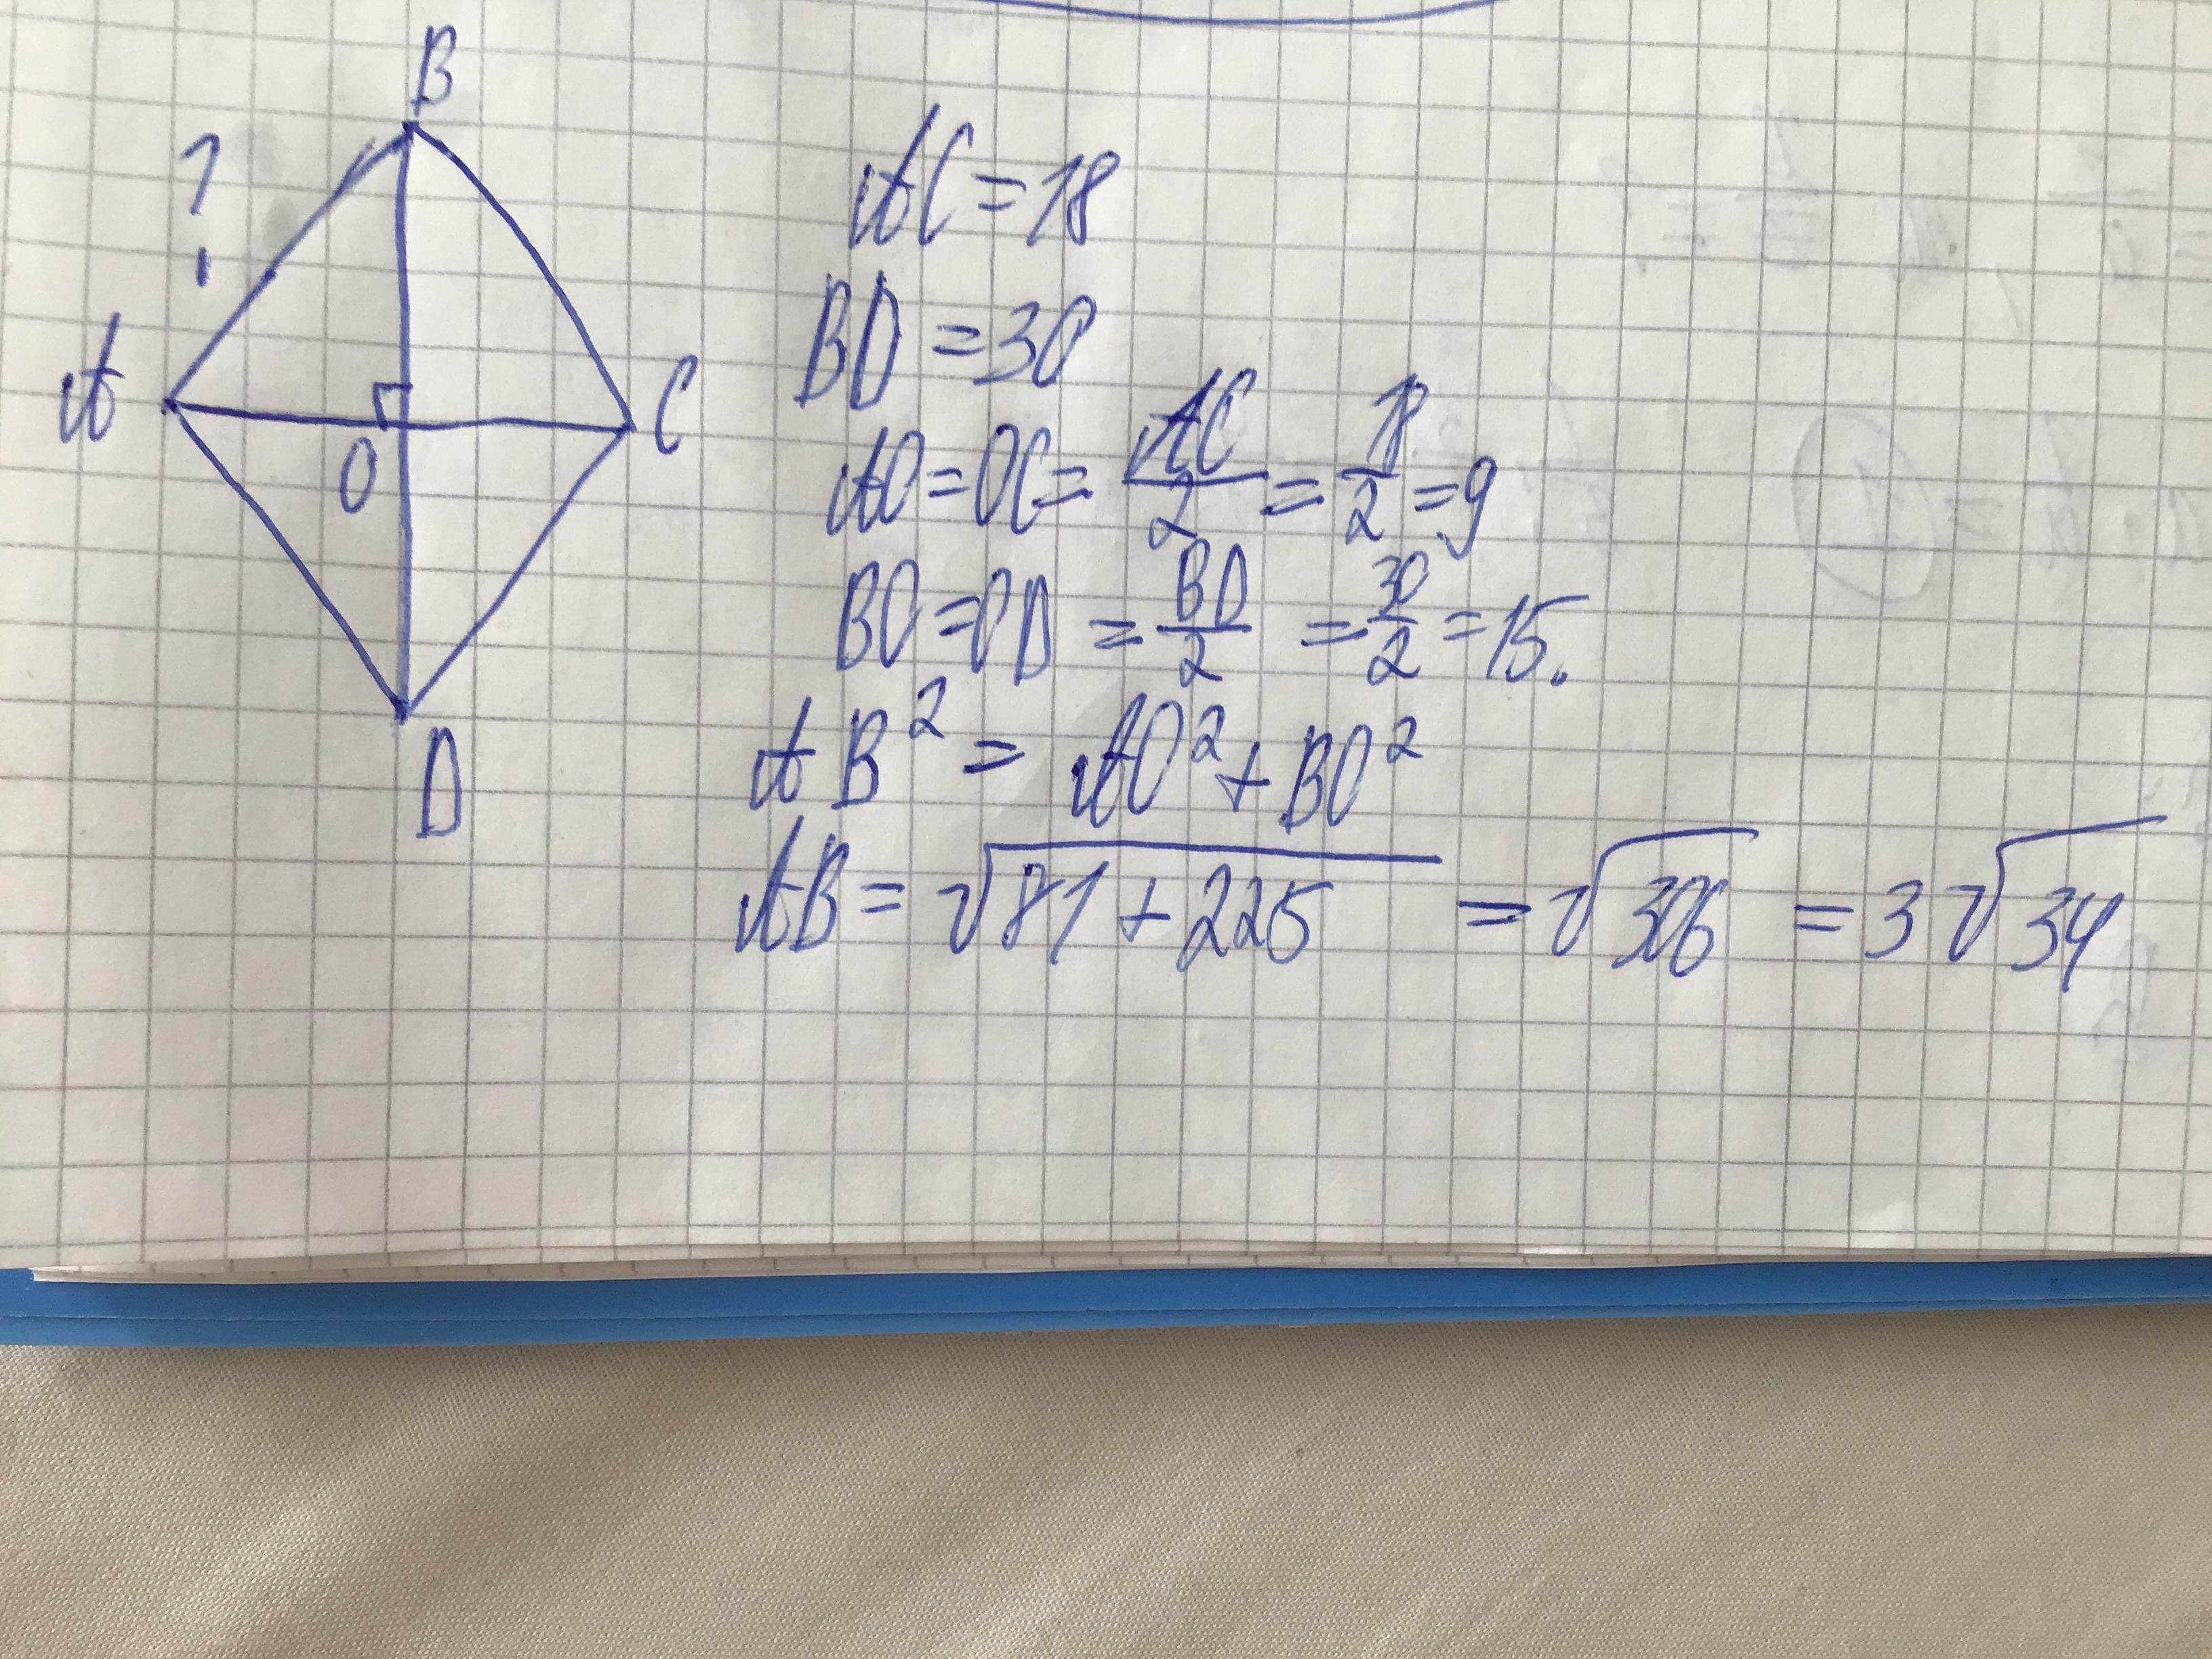 B
?
A
C
O
D
AC = 18
BD = 30
AO = OC = AC/2 = 18/2 = 9
BO = OD = BD/2 = 30/2 = 15.
AB² = AO² + BO²
AB = √81 + 225 = √306 = 3√34